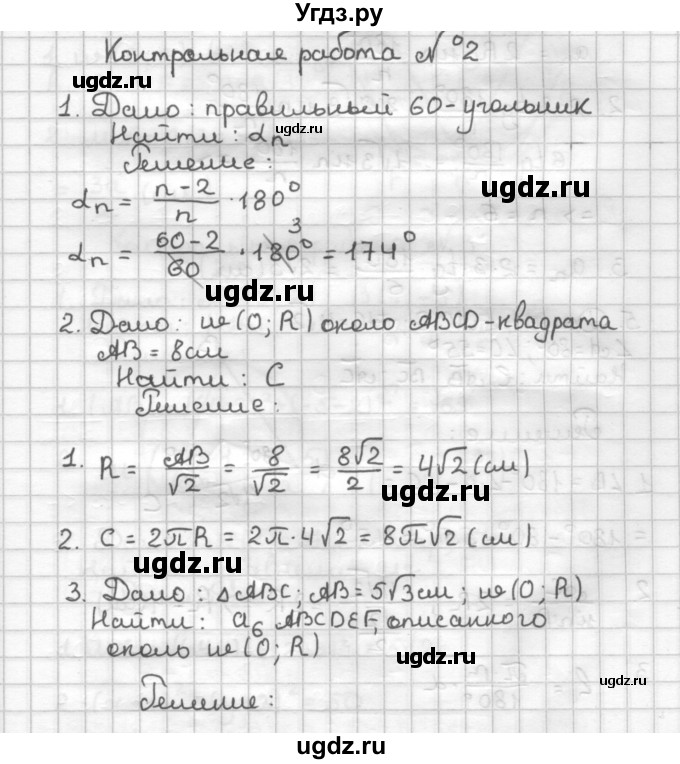 Угдз.ру
Контрольная работа №2
ugdz.ru
1. Дано: правильный 60-угольник
Найти: αn
ugdz.ru
Решение:
αn = (n-2)/n · 180°
ugdz.ru
αn = (60-2)/60 · 180° 3 = 174°
ugdz.ru
2. Дано: ω(O; R) около ABCD-квадрата
AB = 8см
ugdz.ru
Найти: C
Решение:
1. R = AB/√2 = 8/√2 = 8√2/2 = 4√2 (см)
ugdz.ru
2. C = 2πR = 2π·4√2 = 8π√2 (см)
ugdz.ru
3. Дано: ΔABC; AB = 5√3см; ω(O; R)
Найти: a6 ABCDEF, описанного
ugdz.ru
около ω(O; R)
ugdz.ru
Решение:
ugdz.ru